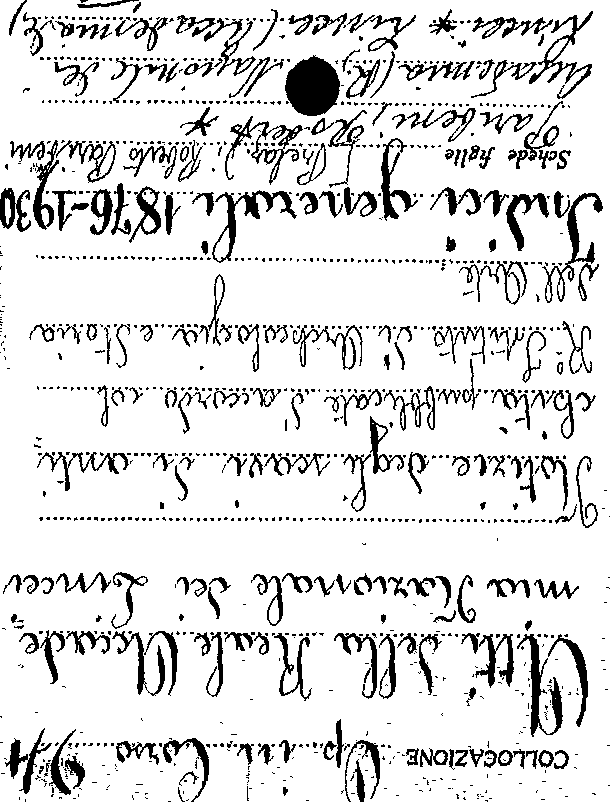 COLLOCAZIONE Op. in Corso 9/1
Atti della Reale Accade=
mia Nazionale dei Lincei
Notizie degli scavi di anti=
chità pubblicate d'accordo col
R.º Istituto di Archeologia e Storia
dell'Arte
Indici generali 1876-1930
Schede figlie [Prelaz. di Roberto Paribeni
Paribeni, Roberto *
Accademia (R.) Nazionale dei
Lincei * Lincei (Accademia de